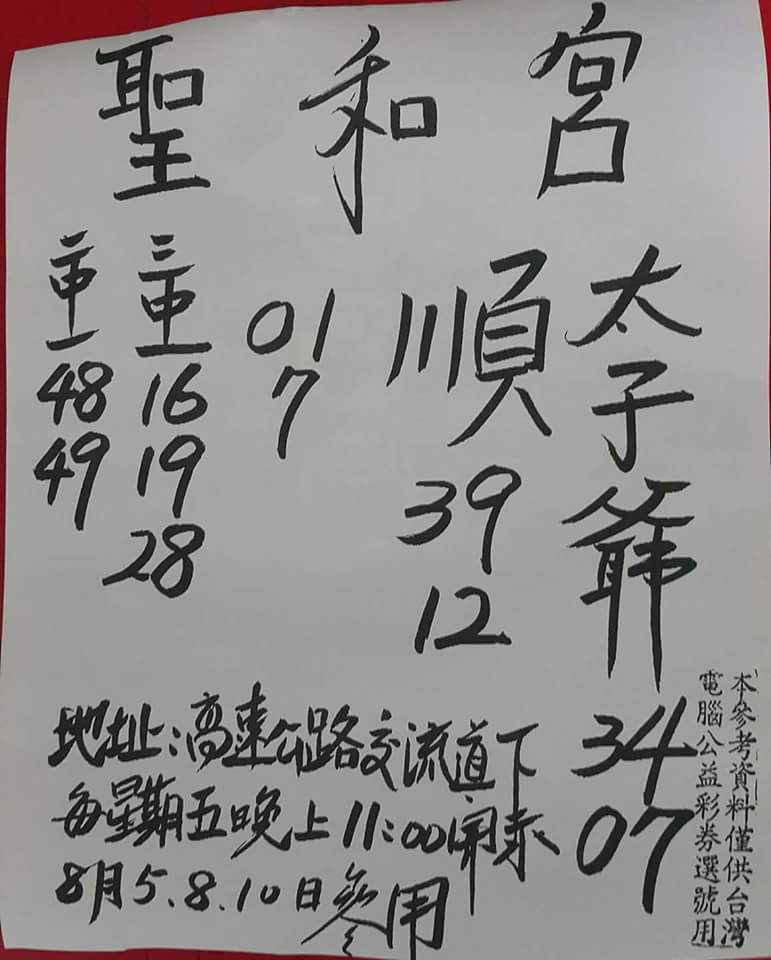 聖和宮
太子爺
34
07
順
39
12
01
7
三中一
16
19
28
二中一
48
49
地址:高速公路交流道下
每星期五晚上11:00開示
8月5.8.10日參用
本參考資料僅供台灣
電腦公益彩券選號用